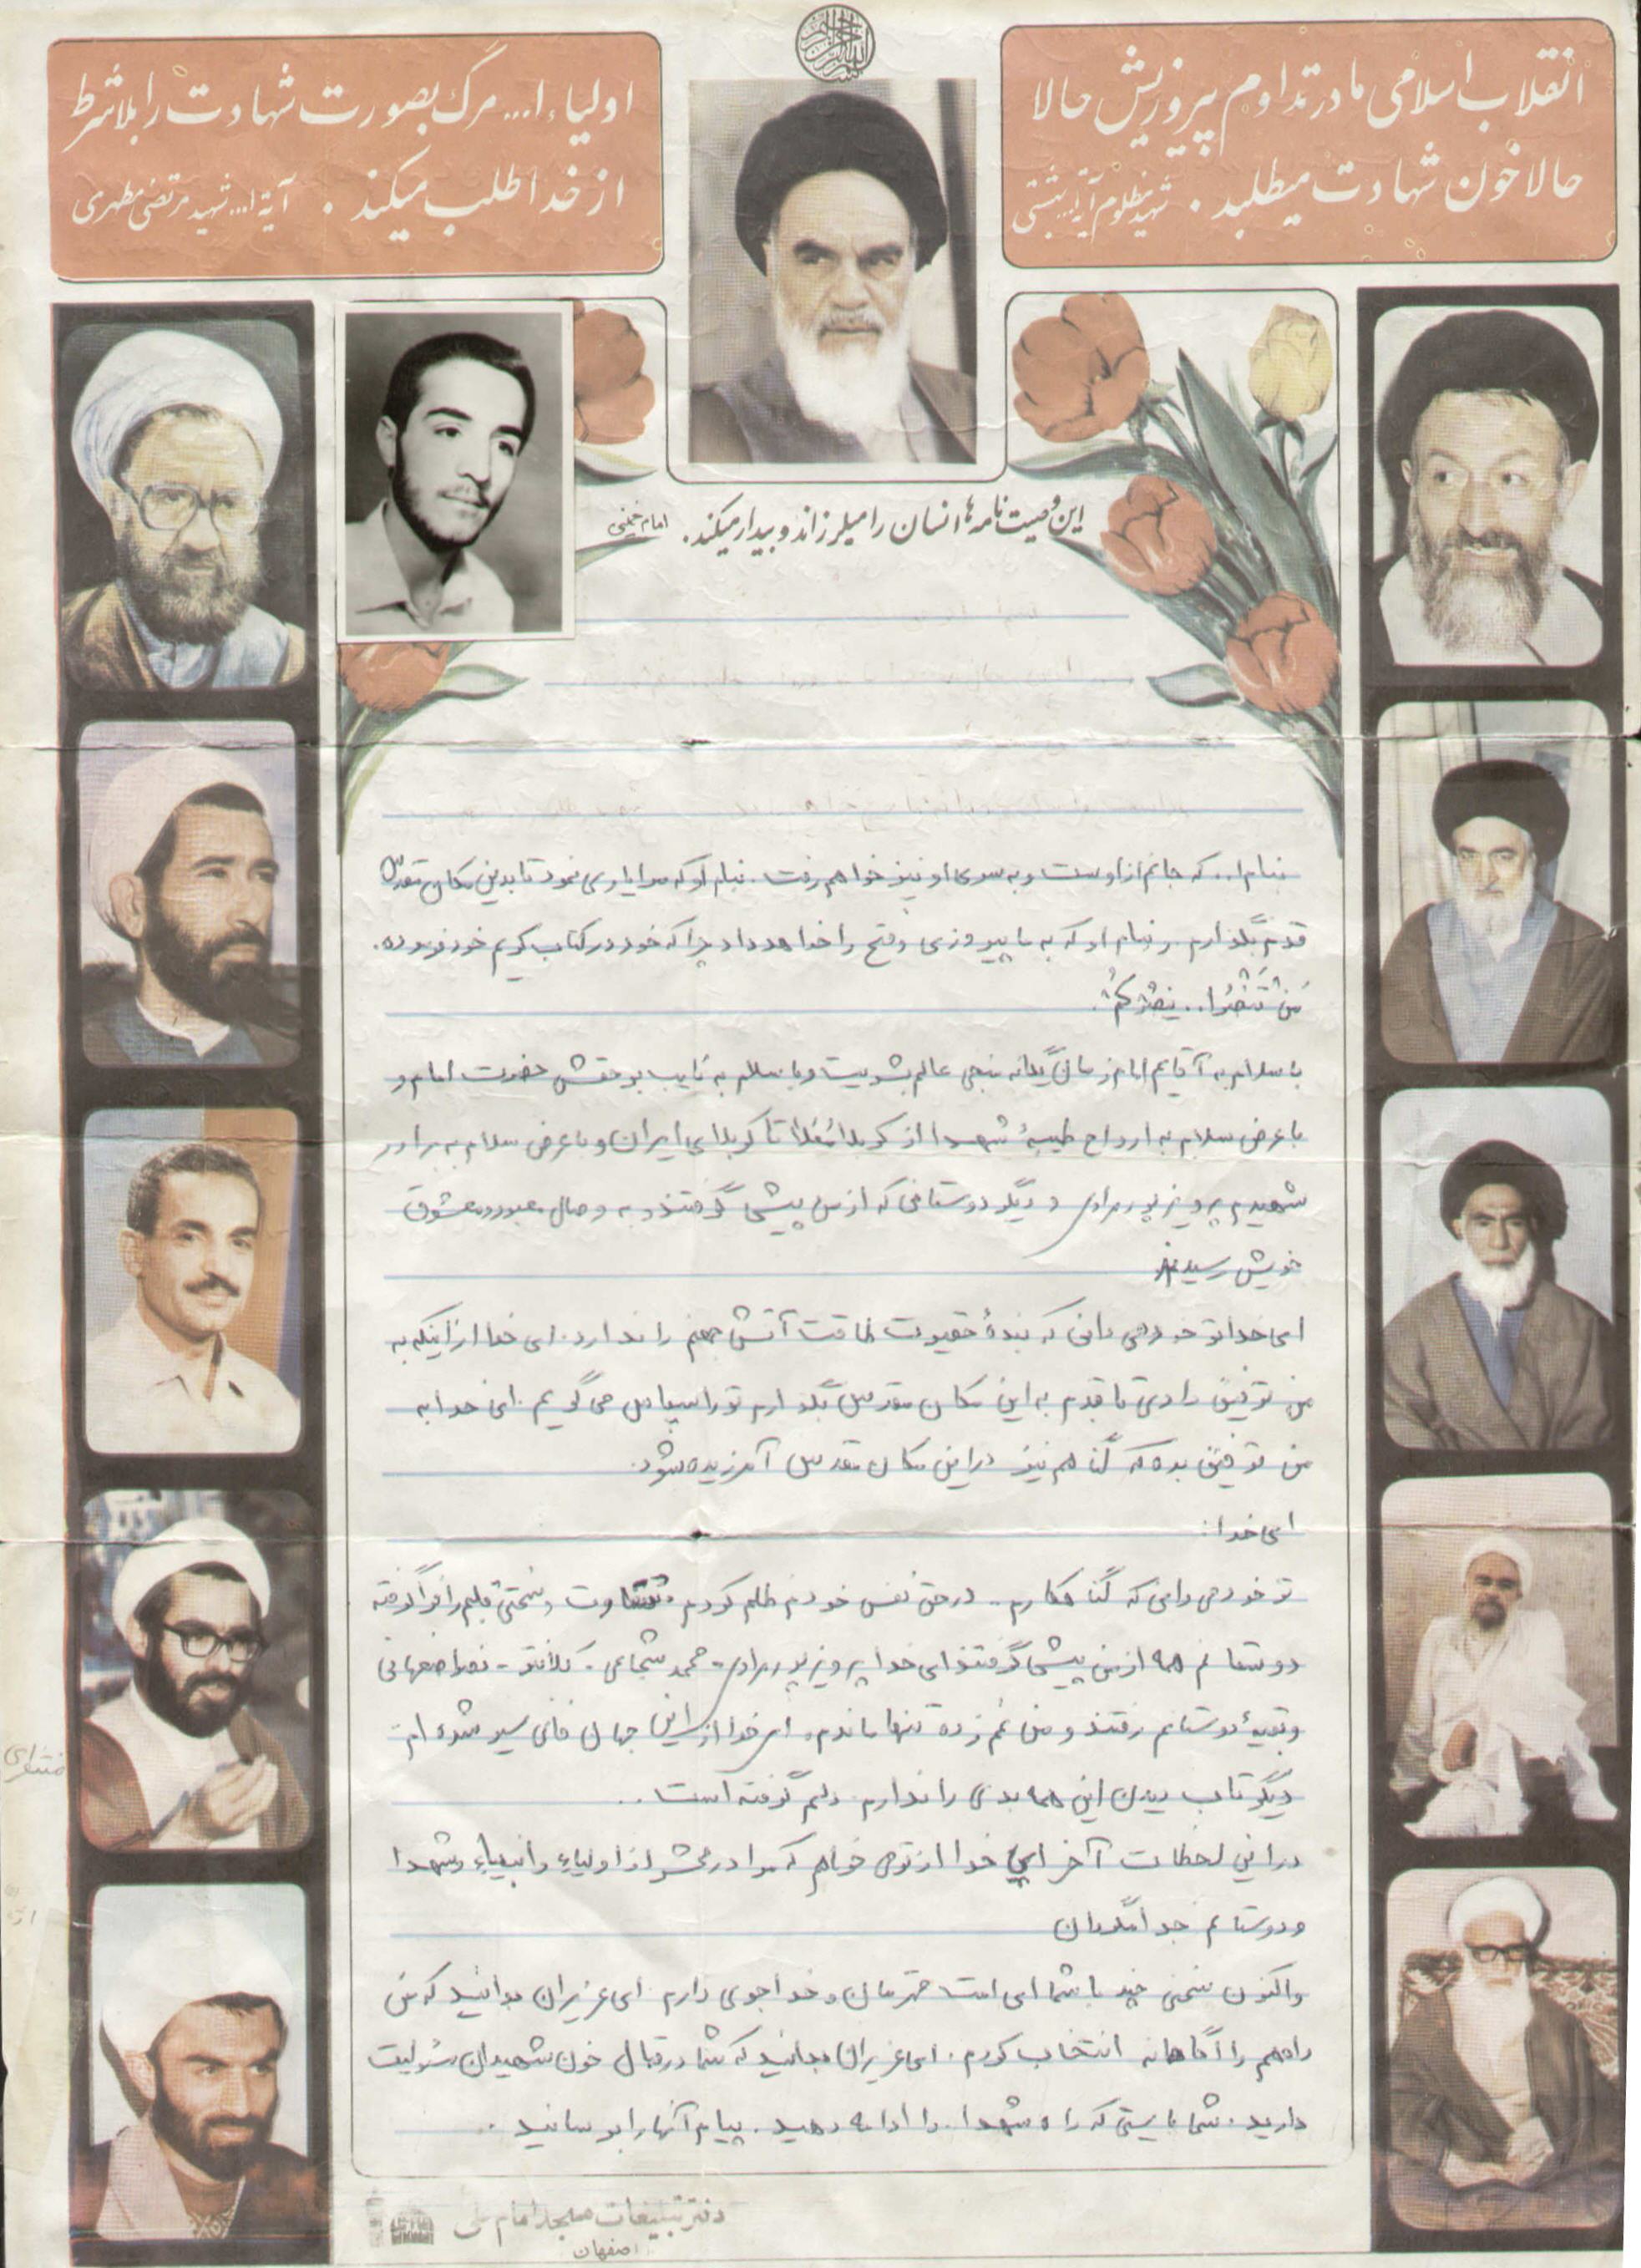 انقلاب اسلامی ما در تداوم پیروزیش حالا
حالا خون شهادت میطلبد . شهید مظلوم آیة ا... بهشتی
اولیاء ا... مرگ بصورت شهادت را بلاشرط
از خدا طلب میکند . آیة ا... شهید مرتضی مطهری
این وصیت نامه ها انسان را میلرزاند و بیدار میکند. امام خمینی
بنام ا.. که جانم از اوست و به سوی او نیز خواهم رفت . بنام او که مرا یاری نمود تا بدین مکان مقدس
قدم بگذارم و بنام او که به ما پیروزی و فتح را خواهد داد چرا که خود در کتاب کریم خود فرموده.
تَنْصُرُوا.. یَنْصُرْکُمْ.
با سلام به آقایم امام زمان یگانه منجی عالم بشریت و با سلام به نایب بر حقش حضرت امام و
با عرض سلام به ارواح طیبهٔ شهدا از کربلا تا کربلای ایران و با عرض سلام به برادر
شهیدم پرویز پورمرادی و دیگر دوستانی که از من پیشی گرفتند و به وصال معبود و معشوق
خویش رسیدند
ای خدا تو خود می دانی که بندهٔ حقیرت طاقت آتش جهنم را ندارد. ای خدا از اینکه به
من توفیق دادی تا قدم به این مکان مقدس بگذارم تو را سپاس می گویم . ای خدا به
من توفیق بده که گناهم نیز در این مکان مقدس آمرزیده شود.
ای خدا :
تو خود می دانی که گناهکارم .. در حق نفس خودم ظلم کردم و سختی قلبم را فرا گرفته
دوستانم همه از من پیشی گرفتند ای خدا پرویز پورمرادی - محمد شجاعی - کلانتر - نصر اصفهانی
و بقیهٔ دوستانم رفتند و من غم زده تنها ماندم. ای خدا از این جهان فانی سیر شده ام
دیگر تاب دیدن این همه بدی را ندارم دلم گرفته است ..
در این لحظات آخر ای خدا از تو می خواهم که مرا در محشر از اولیاء و انبیاء و شهدا
و دوستانم جدا مگردان
و اکنون سخنی چند با شما ای امت قهرمان و خداجوی دارم . ای عزیزان بدانید که من
راهم را آگاهانه انتخاب کردم . ای عزیزان بدانید که شما در قبال خون شهیدان مسئولیت
دارید . شما بایستی که راه شهدا را ادامه دهید . پیام آنها را برسانید .
دفتر تبلیغات مسجد امام علی
اصفهان